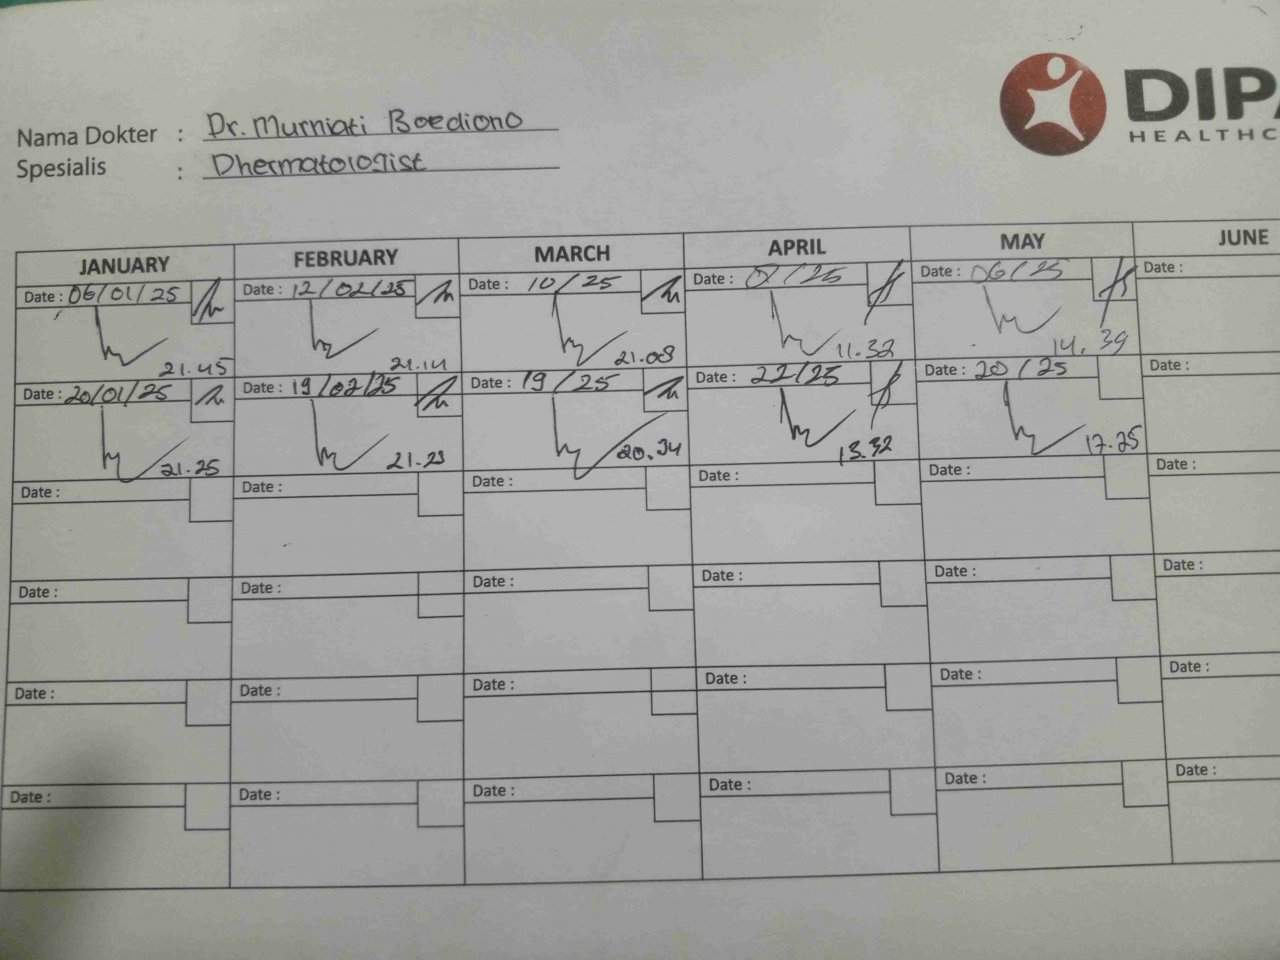 DIPA
HEALTHC
Nama Dokter : Dr. Murniati Boediono
Spesialis : Dhermatologist
JANUARY FEBRUARY MARCH APRIL MAY JUNE
Date : 06/01/25 Date : 12/02/25 Date : 10/25 Date : /25 Date : 06/25 Date :
21.45 21.14 21.08 11.32 14.39
Date : 20/01/25 Date : 19/02/25 Date : 19/25 Date : 22/25 Date : 20/25 Date :
21.25 21.23 20.34 13.32 17.25
Date : Date : Date : Date : Date : Date :
Date : Date : Date : Date : Date : Date :
Date : Date : Date : Date : Date : Date :
Date : Date : Date : Date : Date : Date :